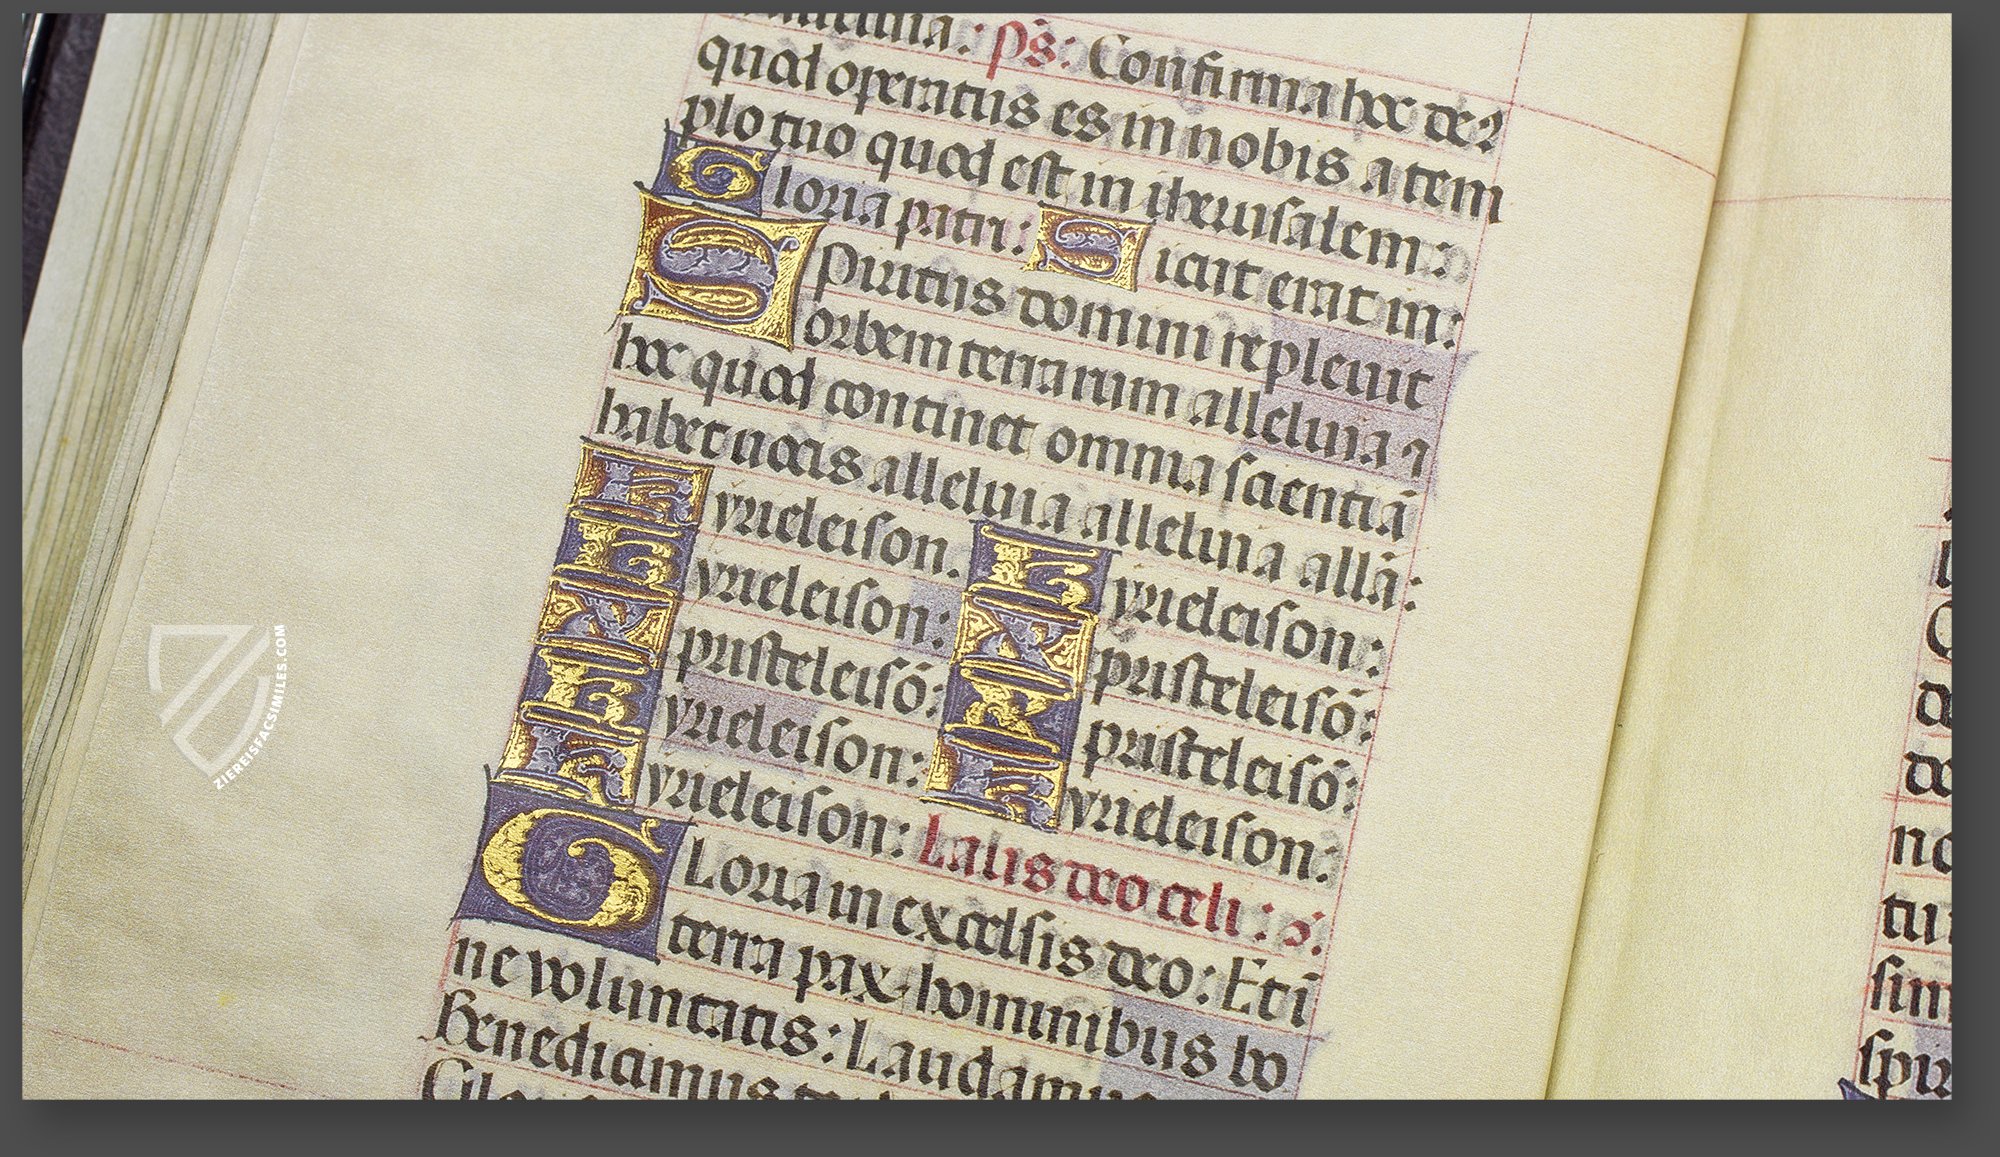 alleluia: ps: Confirma hoc de9
quod operatus es in nobis a tem
plo tuo quod est in iherusalem:
Gloria patri: Sicut erat in:
Spiritus domini repleuit
orbem terrarum alleluia ⁊
hoc quod continet omnia scientiā
habet uocis alleluia alleluia allā:
Kyrieleison. Kyrieleison:
Kyrieleison: Kpristeleisō:
Kpristeleisō: Kpristeleisō:
Kyrieleison: Kyrieleison:
Kyrieleison: Lalis deo celi: s:
GLoria in excelsis deo: Et ī
terra pax hominibus bo
ne voluntatis: Laudamus
Benedicimus te
no
tu
sim
spir
ZIEREISFACSIMILES.COM